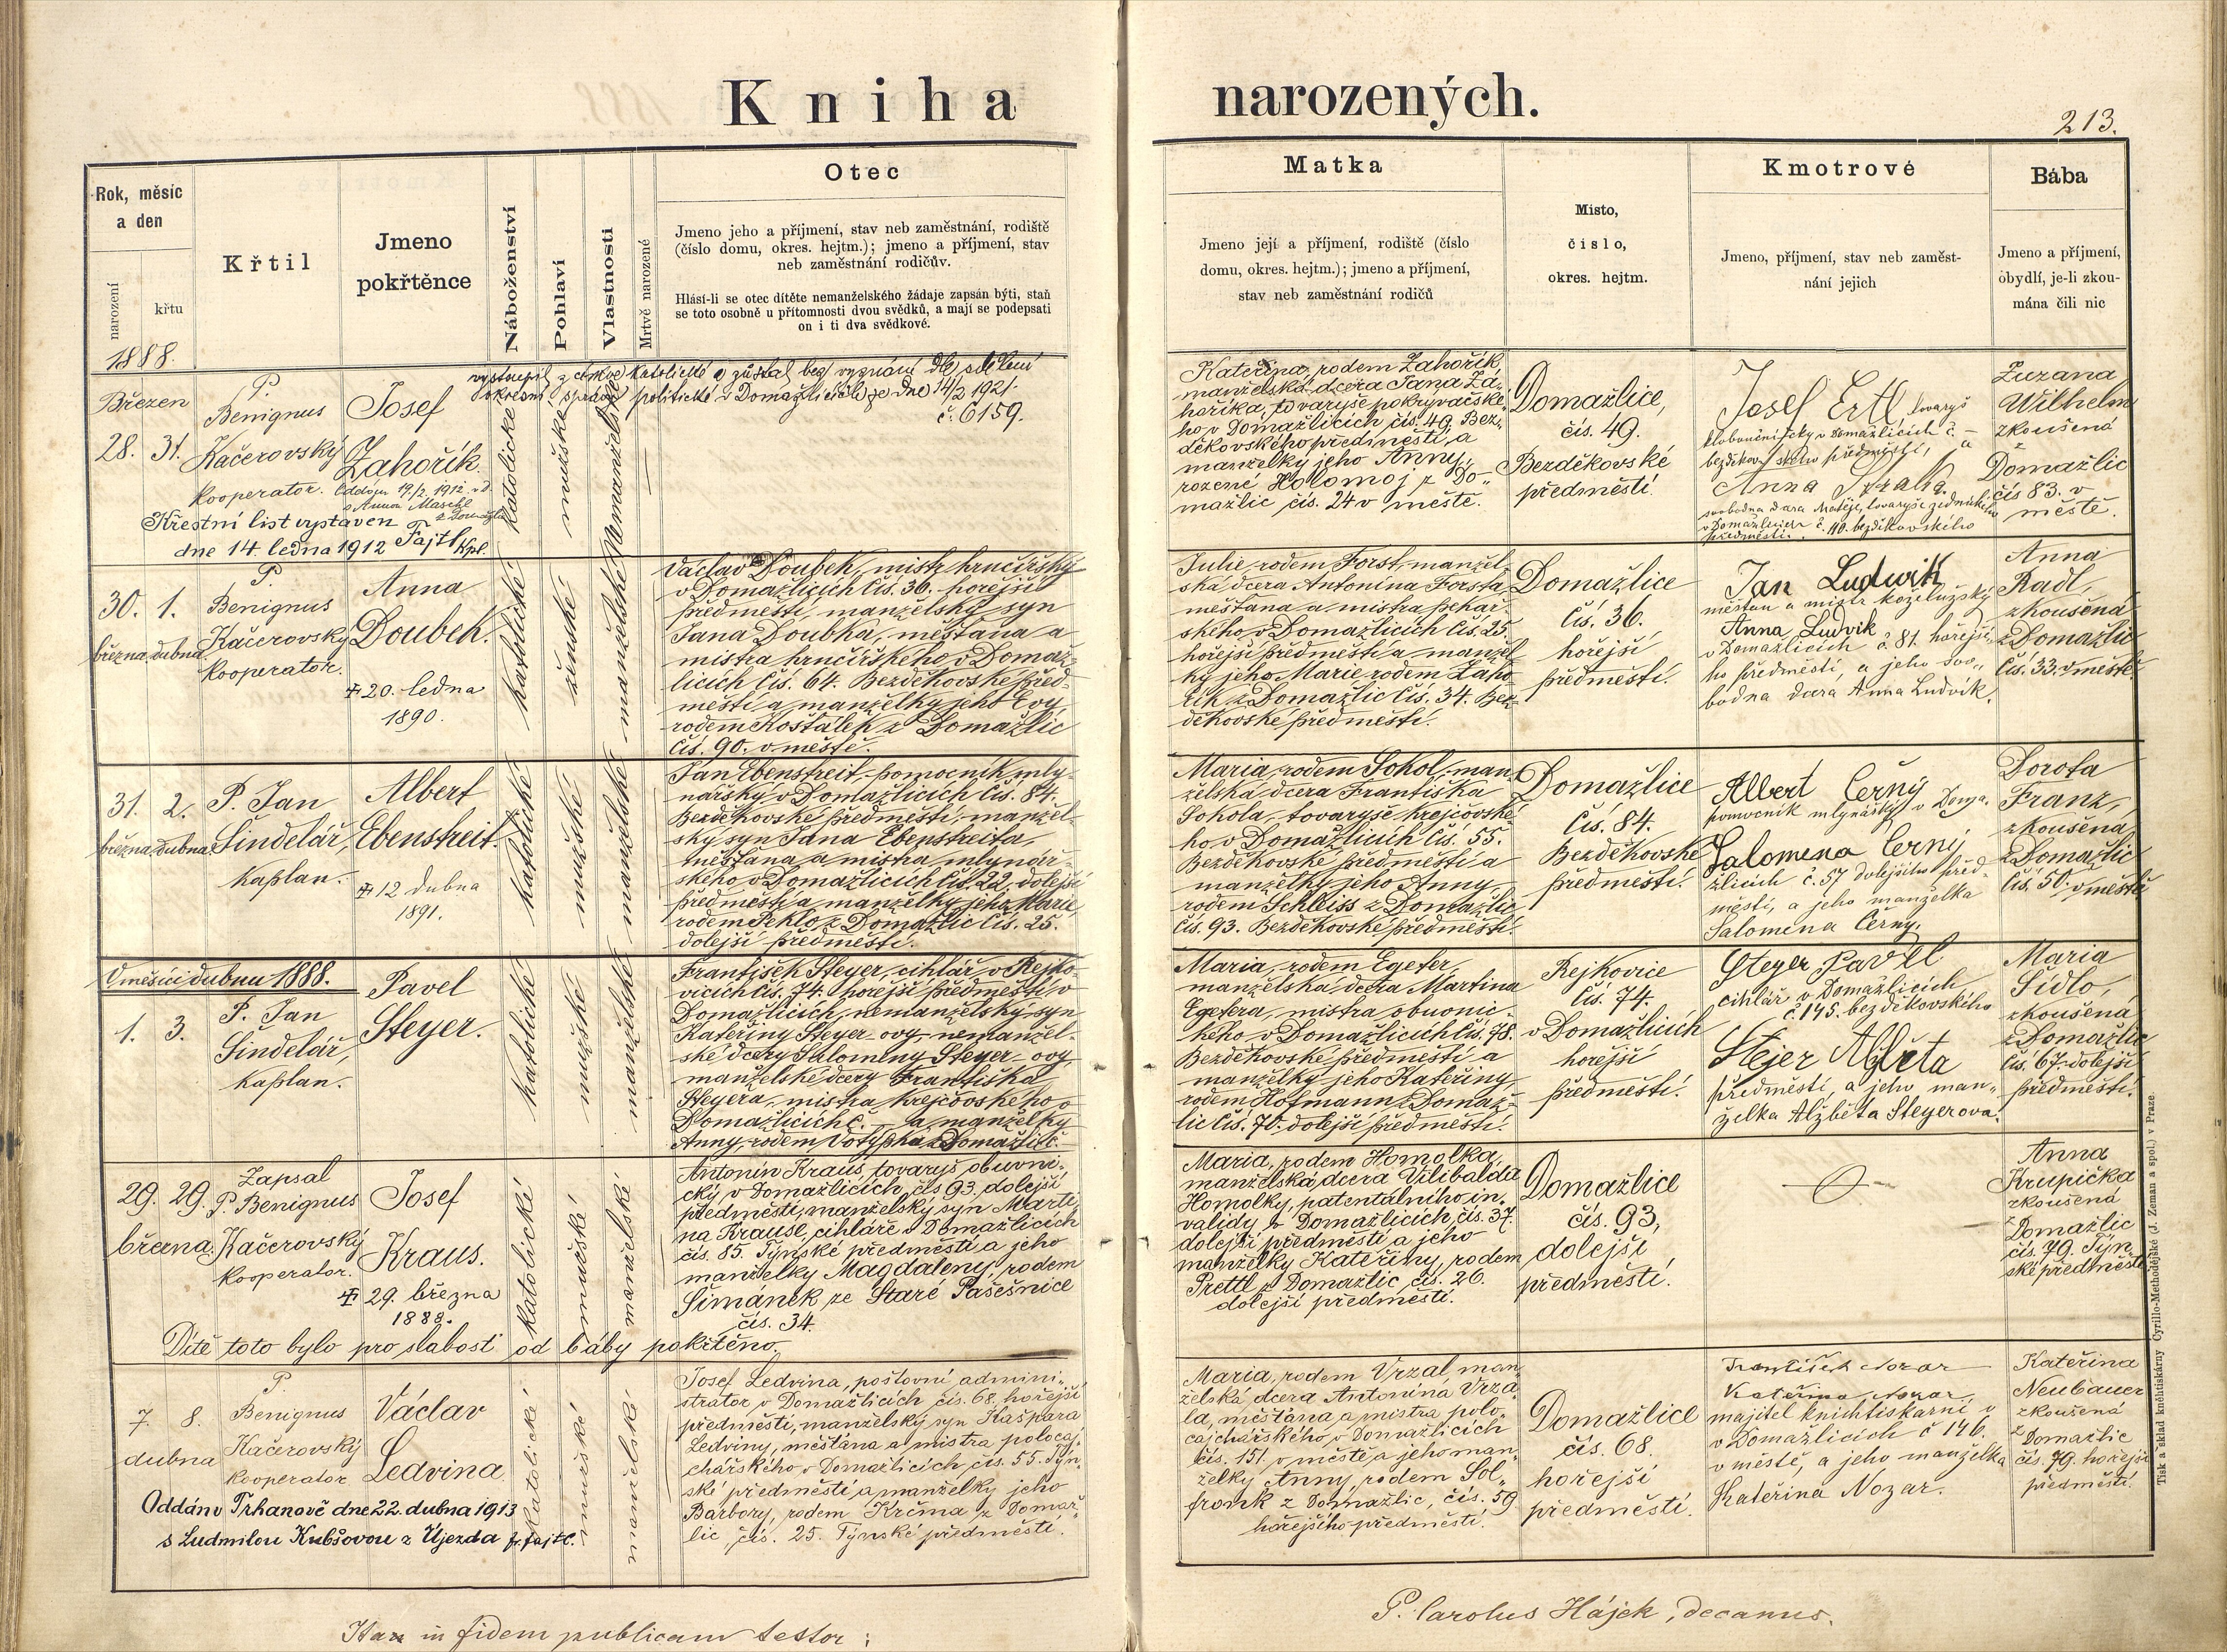 Kniha narozených.
213.
Rok, měsíc
a den
narození
křtu
Křtil
Jmeno
pokřtěnce
Náboženství
Pohlaví
Vlastnosti
Mrtvě narozené
Otec
Jmeno jeho a příjmení, stav neb zaměstnání, rodiště
(číslo domu, okres. hejtm.); jmeno a příjmení, stav
neb zaměstnání rodičův.
Hlásí-li se otec dítěte nemanželského žádaje zapsán býti, staň
se toto osobně u přítomnosti dvou svědků, a mají se podepsati
on i ti dva svědkové.
Matka
Jmeno její a příjmení, rodiště (číslo
domu, okres. hejtm.); jmeno a příjmení,
stav neb zaměstnání rodičů
Místo,
číslo,
okres. hejtm.
Kmotrové
Jmeno, příjmení, stav neb zaměst-
nání jejich
Bába
Jmeno a příjmení,
obydlí, je-li zkou-
mána čili nic
1888.
Březen
28. 31.
P.
Benignus
Kačerovský
kooperator.
Josef
Zahořík.
Oddán 19/2 1912 v D.
s Annou Maschl
Křestní list vystaven
dne 14. ledna 1912 Fajtl kpl.
katolické
mužské
Nemanželské
vystoupil z církve katolické a zůstal bez vyznání dle sdělení
okresní správy politické v Domažlicích ze dne 14/2 1921
č. 6159.
Kateřina, rodem Zahořík,
manželská dcera Jana Za-
hoříka, tovaryše pokryvačské-
ho v Domažlicích čís. 49. Bez-
děkovského předměstí a
manželky jeho Anny,
rozené Holomoj z Do-
mažlic čís. 24 v městě.
Domažlice,
čís. 49.
Bezděkovské
předměstí.
Josef Ertl tovaryš
kloboučnický v Domažlicích č. –
bezděkovského předměstí, a
Anna
svobodná dcera Matěje, tovaryše zednického
v Domažlicích č. 110. bezděkovského
předměstí.
Zuzana
Wilhelm
zkoušená
z
Domažlic
čís 83. v
městě.
30. 1.
března dubna
P.
Benignus
Kačerovský
kooperator.
Anna
Doubek.
20. ledna
1890.
katolické
ženské
manželské
Václav Doubek, mistr hrnčířský
v Domažlicích čís. 36. hořejší
předměstí, manželský syn
Jana Doubka, měšťana a
mistra hrnčířského v Domaž-
licích čís. 64. Bezděkovské před-
městí a manželky jeho Evy,
rodem Košťálek z Domažlic
čís. 90. v městě.
Julie, rodem Forst, manžel-
ská dcera Antonína Forsta,
měšťana a mistra pekař-
ského v Domažlicích čís. 25.
hořejší předměstí a manžel-
ky jeho Marie, rodem Zaho-
řík z Domažlic čís. 34. Bez-
děkovské předměstí.
Domažlice
čís. 36.
hořejší
předměstí.
Jan Ludwik
měšťan a mistr koželužský
Anna Ludvik
v Domažlicích č. 81. hořejší-
ho předměstí, a jeho svo-
bodná dcera Anna Ludvik.
Anna
Radl,
zkoušená
z Domažlic
čís. 33. v městě.
31. 2.
března dubna
P. Jan
Šindelář,
kaplan.
Albert
Ebenstreit.
12 dubna
1891.
katolické
mužské
manželské
Jan Ebenstreit, pomocník mly-
nářský v Domažlicích čís. 84.
Bezděkovské předměstí, manžel-
ský syn Jana Ebenstreita,
měšťana a mistra mlynář-
ského v Domažlicích čís. 22. dolejší
předměstí a manželky jeho Marie,
rodem Peklo z Domažlic čís. 25.
dolejší předměstí.
Maria, rodem Sokol, man-
želská dcera Františka
Sokola, tovaryše krejčovské-
ho v Domažlicích čís. 55.
Bezděkovské předměstí a
manželky jeho Anny,
rodem Schleiss z Domažlic
čís. 93. Bezděkovské předměstí.
Domažlice
čís. 84.
Bezděkovské
předměstí.
Albert Černý
pomocník mlynářský v Doma-
Salomena Černý
žlicích č. 57 dolejšího před-
městí, a jeho manželka
Salomena Černý.
Dorota
Franz,
zkoušená
z Domažlic
čís. 50. v městě
V měsíci dubnu 1888.
1. 3.
P. Jan
Šindelář,
kaplan.
Pavel
Steyer.
katolické
mužské
manželské
František Steyer, cihlář v Rejko-
vicích čís. 74. hořejší předměstí v
Domažlicích, nemanželský syn
Kateřiny Steyer-ovy, nemanžel-
ské dcery Salomeny Steyer-ovy
manželské dcery Františka
Steyera, mistra krejčovského v
Domažlicích č. – a manželky
Anny, rodem Votýpka z Domažlic č. –
Maria, rodem Egeter,
manželská dcera Martina
Egetera, mistra obuvnic-
kého v Domažlicích čís. 78.
Bezděkovské předměstí a
manželky jeho Kateřiny,
rodem Hofmann z Domaž-
lic čís. 70. dolejší předměstí.
Rejkovice
čís. 74.
v Domažlicích
hořejší
předměstí.
Steyer Pavel
cihlář v Domažlicích,
č. 145. bezděkovského
Stejer Alžběta
předměstí, a jeho man-
želka Alžběta Steyerova.
Maria
Šídlo,
zkoušená
z Domažlic
čís. 67. dolejší
předměstí.
29. 29.
března.
Zapsal
P. Benignus
Kačerovský
kooperator.
Josef
Kraus.
29. března
1888.
katolické
mužské
manželské
Antonín Kraus, tovaryš obuvni-
cký v Domažlicích, čís 93. dolejší
předměstí, manželský syn Marti-
na Krause, cihláře v Domažlicích
čís. 85. Týnské předměstí a jeho
manželky Magdaleny, rodem
Šimánek ze Staré Pasečnice
čís. 34.
Dítě toto bylo pro slabost od báby pokřtěno.
Maria, rodem Homolka,
manželská dcera Vilibalda
Homolky, patentálního in-
validy v Domažlicích, čís. 37.
dolejší předměstí a jeho
manželky Kateřiny, rodem
Prettl z Domažlic, čís. 26.
dolejší předměstí.
Domažlice
čís. 93,
dolejší
předměstí.
Anna
Krupička
zkoušená
z
Domažlic
čís. 79. Týn-
ské předměstí
7. 8.
dubna
P.
Benignus
Kačerovský
kooperator
Václav
Ledvina.
Oddán v Trhanově dne 22. dubna 1913
s Ludmilou Kubšovou z Újezda fr. fajtl.
katolické
mužské
manželské
Josef Ledvina, poštovní admini-
strator v Domažlicích čís. 68. hořejší
předměstí, manželský syn Kašpara
Ledviny, měšťana a mistra polocaj-
chářského v Domažlicích, čís. 55. Týn-
ské předměstí, a manželky jeho
Barbory, rodem Krčma z Domaž-
lic, čís. 25. Týnské předměstí.
Maria, rodem Vrzal, man-
želská dcera Antonína Vrza-
la, měšťana a mistra polo-
cajchářského v Domažlicích
čís. 151. v městě a jeho man-
želky Anny, rodem Sol-
fronk z Domažlic, čís. 59
hořejšího předměstí.
Domažlice
čís. 68.
hořejší
předměstí.
František Nozar
Kateřina Nozar,
majitel knihtiskárni v
v Domažlicích č 146.
v městě, a jeho manželka
Kateřina Nozar.
Kateřina
Neubauer
zkoušená
z
Domažlic
čís. 79. hořejší
předměstí.
Ita in fidem publicam testor:
P. Carolus Hájek, decanus.
Tisk a sklad knihtiskárny Cyrillo-Methodějské (J. Zeman a spol.) v Praze.